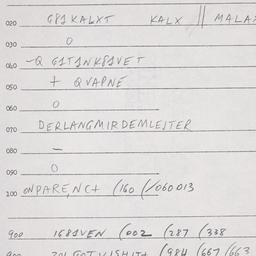 020 GP1KALXT KALX || MALA
030 0
040 -Q G1T1NK81VET
050 + QVAPNE
060 0
070 DERLANGMIRDEMLEITER
080 -
090 0
100 ONPARENC+ (160 (/060013
900 1681VEN (002 (287 (338
(984 (667 (663